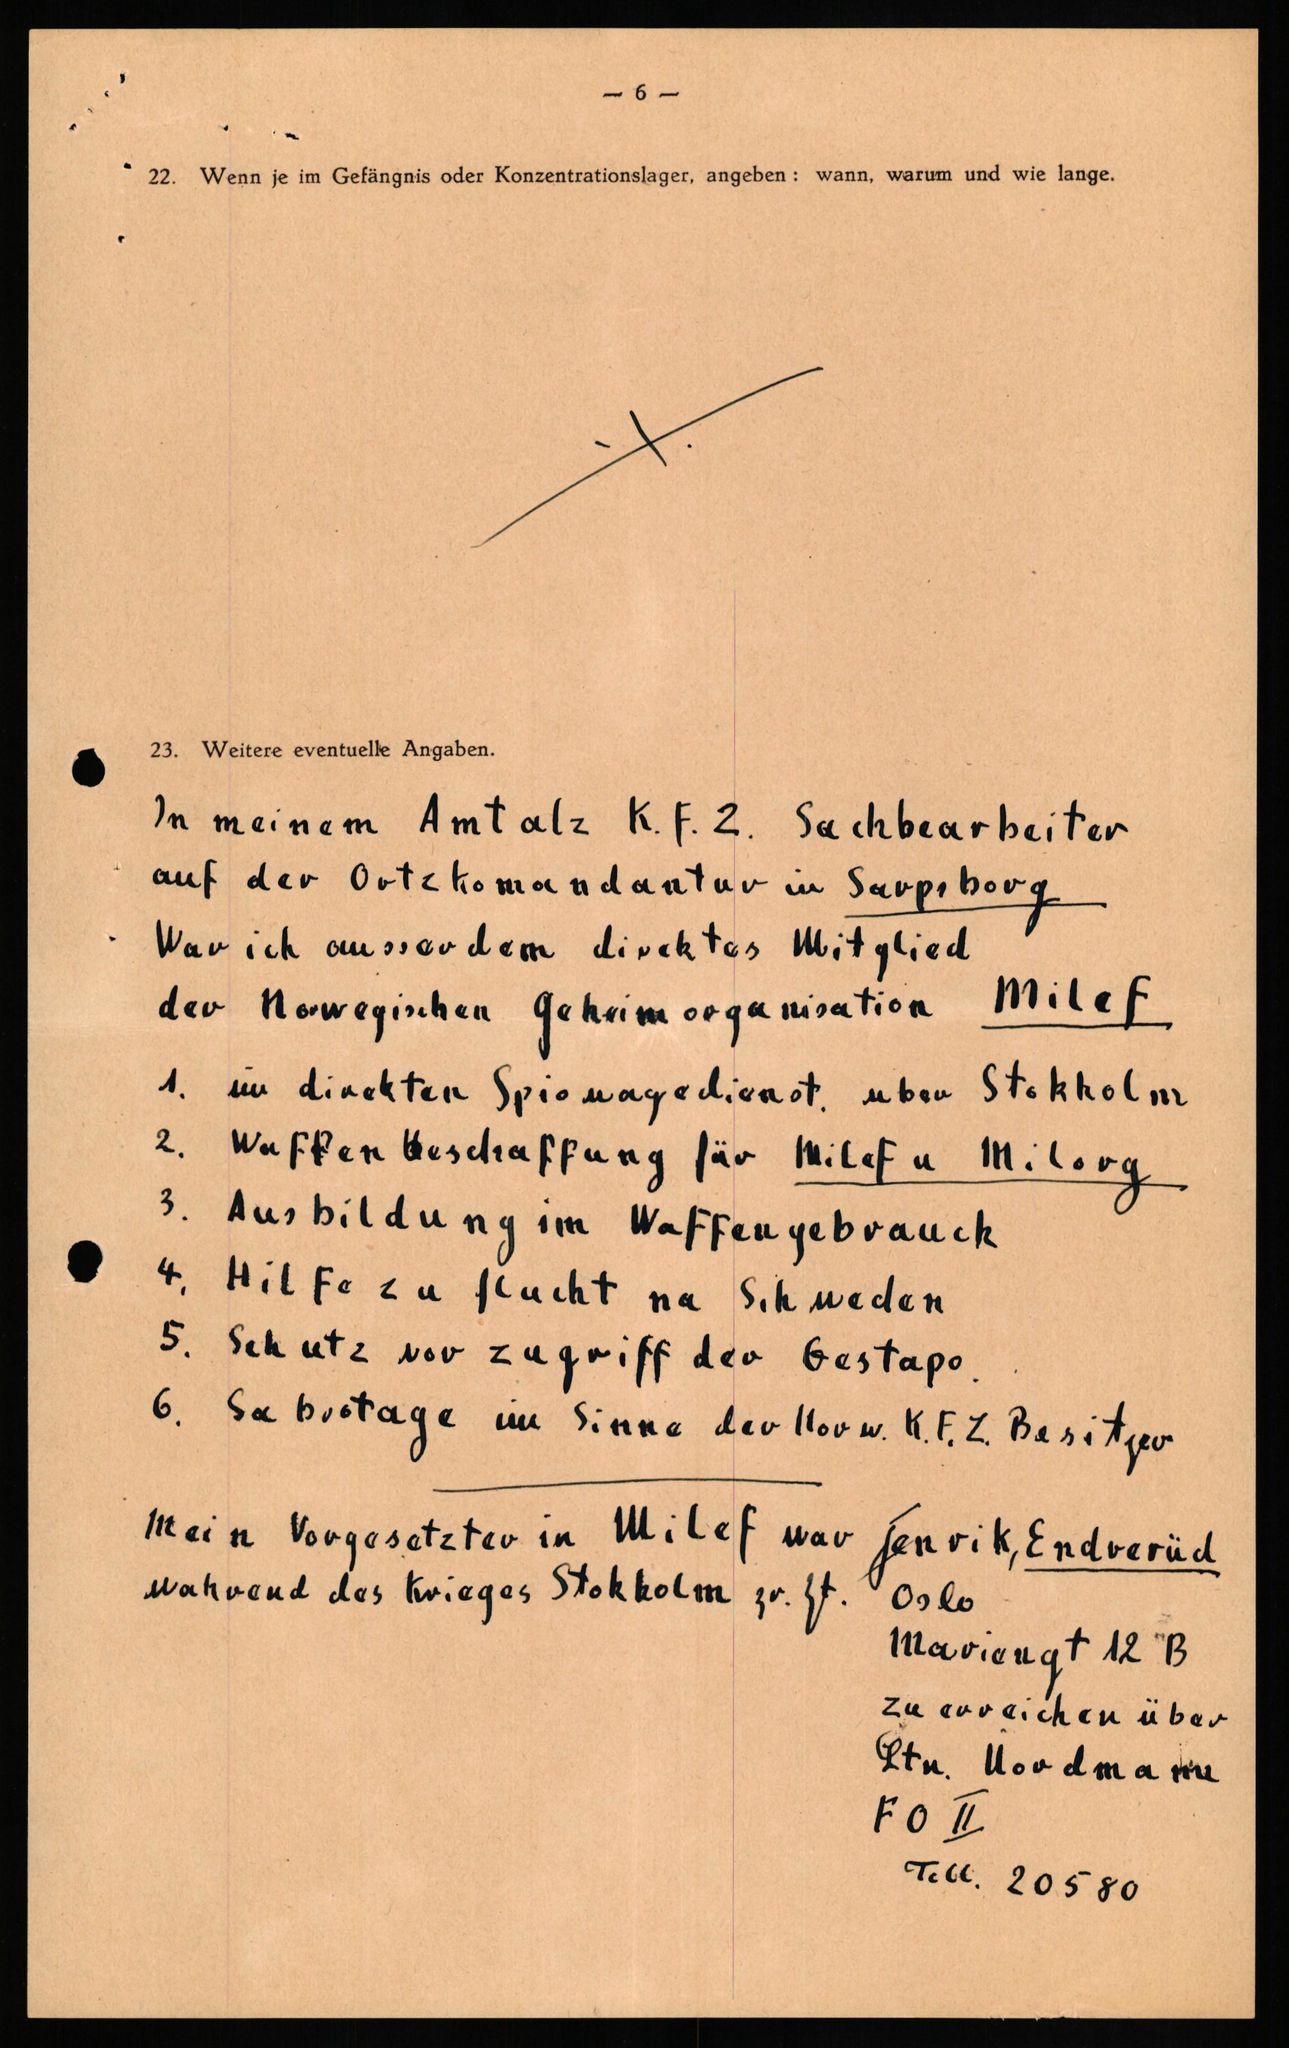 — 6 —
22. Wenn je im Gefängnis oder Konzentrationslager, angeben: wann, warum und wie lange.
23. Weitere eventuelle Angaben.
In meinem Amt alz K.F.Z. Sachbearbeiter
auf der Ortzkomandantur in Sarpsborg
War ich ausserdem direktes Mitglied
der Norwegischen Geheimorganisation Milef
1. im direkten Spionagedienst. uber Stokholm
2. Waffenbeschaffung für Milef u Milorg
3. Ausbildung im Waffengebrauck
4. Hilfe zu flucht na Schweden
5. Schutz vor zugriff der Gestapo.
6. Sabotage im Sinne der Norw. K.F.Z. Besitzer
Mein Vorgesetzter in Milef war Jenrik, Endverüd
wahrend des Krieges Stokholm zr. Zt. Oslo
Mariengt 12 B
zu erreichen über
Ltn. Nordmann
FO II
Tell. 20580